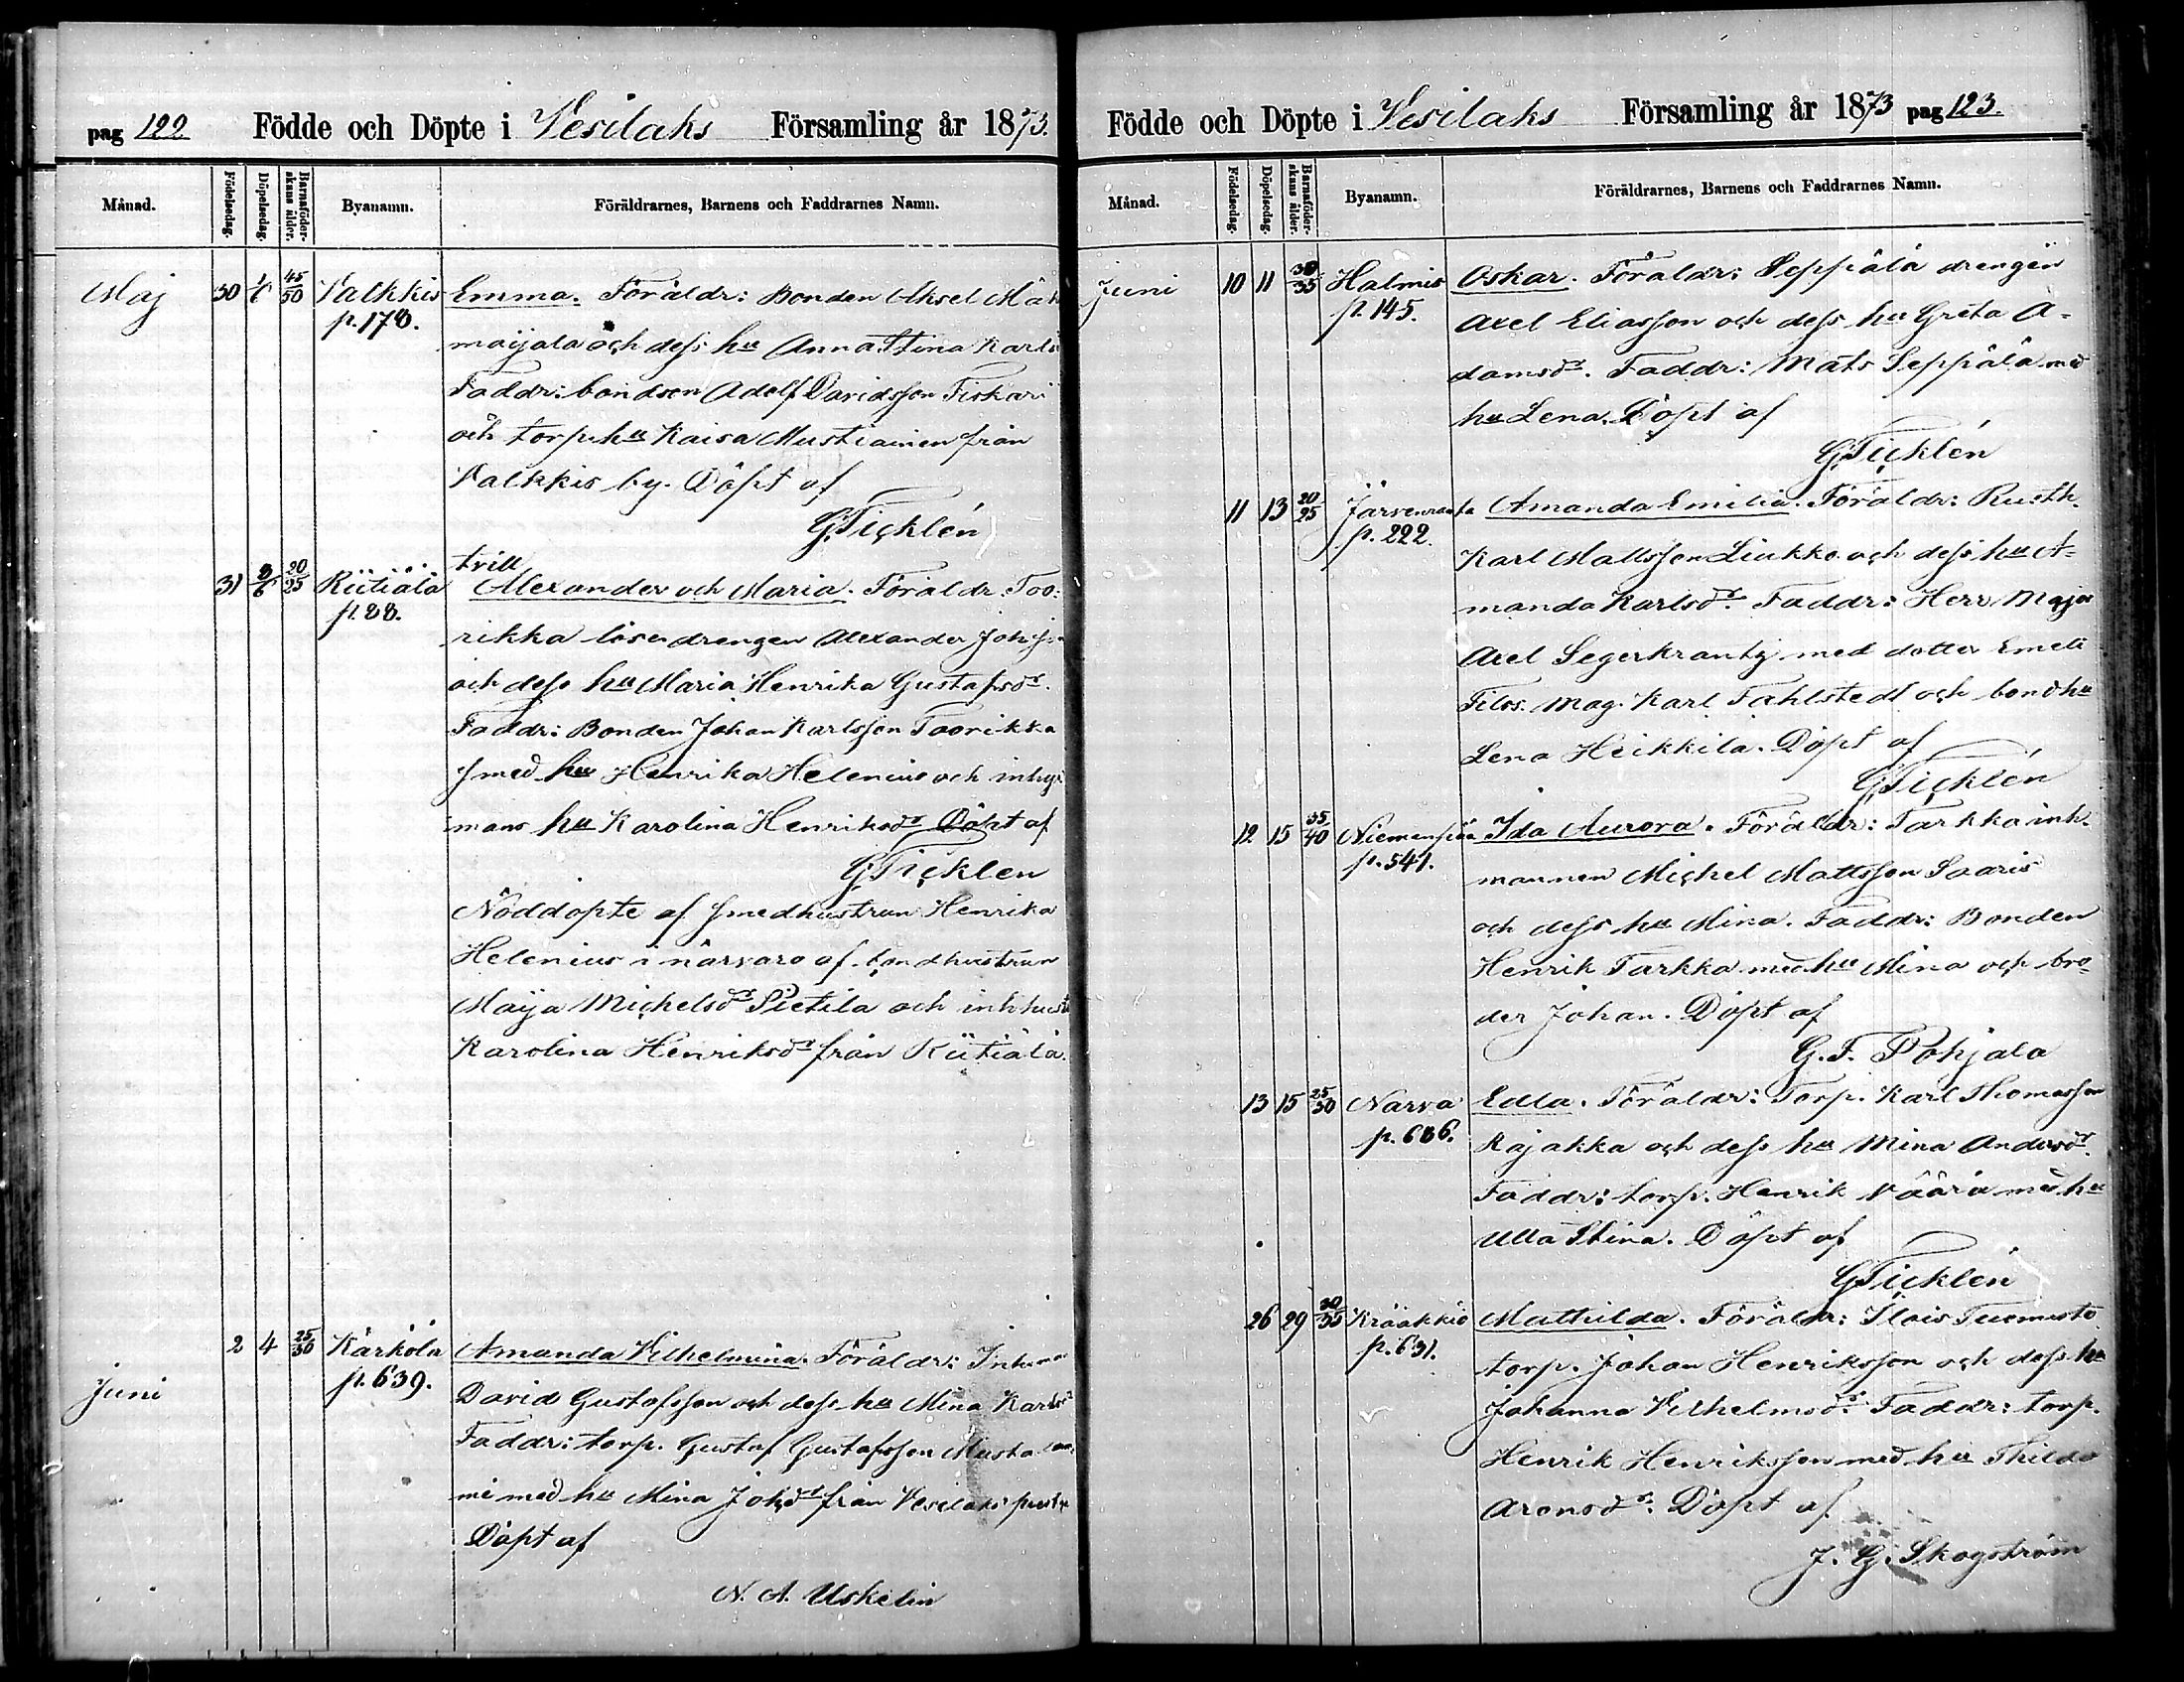 pag 122 Födde och Döpte i Vesilaks Församling år 1873.
Månad. Födelsedag. Döpelsedag. Barnaföderskans ålder. Byanamn. Föräldrarnes, Barnens och Faddrarnes Namn.
Maj 30 1/6 45/50 Valkkis Emma. Föräldr: Bonden Aksel
p. 178.
maijala och dess hu Anna Stina
Faddr: bondson Adolf Davidsson Fiskari
och torp. hu Kaisa Mustiainen från
Valkkis by. Döpt af
G Ticklén
trill
31 3/6 20/25 Riitiälä Alexander och Maria. Föräldr: Too-
p. 88.
rikka löse drengen Alexander
och dess hu Maria Henrika Gustafsdr.
Faddr: Bonden Johan Karlsson Toorikka
smed hu Henrika Helenius och inhys
mans hu Karolina Henriksdr Döpt af
G Ticklen
Nöddöpte af smedhustrun Henrika
Helenius i närvaro af bondhustrun
Maija Michelsdr Pietilä och inh hust
Karolina Henriksdr från Riitiälä.
Juni 2 4 25/30 Kärkölä Amanda Vilhelmina. Föräldr:
p. 639.
David Gustafsson och dess hu Mina
Faddr: torp. Gustaf Gustafsson
mi med hu Mina Johsdr från Vesilaks
Döpt af
N. A. Uskelin
Födde och Döpte i Vesilaks Församling år 1873 pag 123.
Månad. Födelsedag. Döpelsedag. Barnaföderskans ålder. Byanamn. Föräldrarnes, Barnens och Faddrarnes Namn.
Juni 10 11 30/35 Halmis Oskar. Föräldr: Seppälä drengen
p. 145.
Axel Eliasson och dess hu Greta A-
damsdr. Faddr: Mats Seppälä med
hu Lena. Döpt af
G Ticklén
11 13 20/25 Järvenranta Amanda Emilia. Föräldr: Rusth.
p. 222.
Karl Mattsson Liukko och dess hu A-
manda Karlsdr. Faddr: Herr Major
Axel Segerkrantz med dotter Emeli
Filos. Mag. Karl Fahlstedt och bondhu
Lena Heikkilä. Döpt af
G Ticklén
12 15 35/40 Niemenpää Ida Aurora. Föräldr: Tarkka inh.
p. 541.
mannen Michel Mattsson Saaris
och dess hu Mina. Faddr: Bonden
Henrik Tarkka med hu Mina och bro-
der Johan. Döpt af
G. F. Pohjala
13 15 25/30 Narva Edla. Föräldr: Torp. Karl Thomasson
p. 686.
Rajakka och dess hu Mina Andersdr.
Faddr: torp. Henrik Väärä med hu
Ulla Stina. Döpt af
G Ticklén
26 29 30/35 Krääkkiö Mathilda. Föräldr: Ilois Tuomisto
p. 631.
torp. Johan Henriksson och dess hu
Johanna Vilhelmsdr. Faddr: torp.
Henrik Henriksson med hu Thilda
Aronsdr. Döpt af
J. G. Skogström